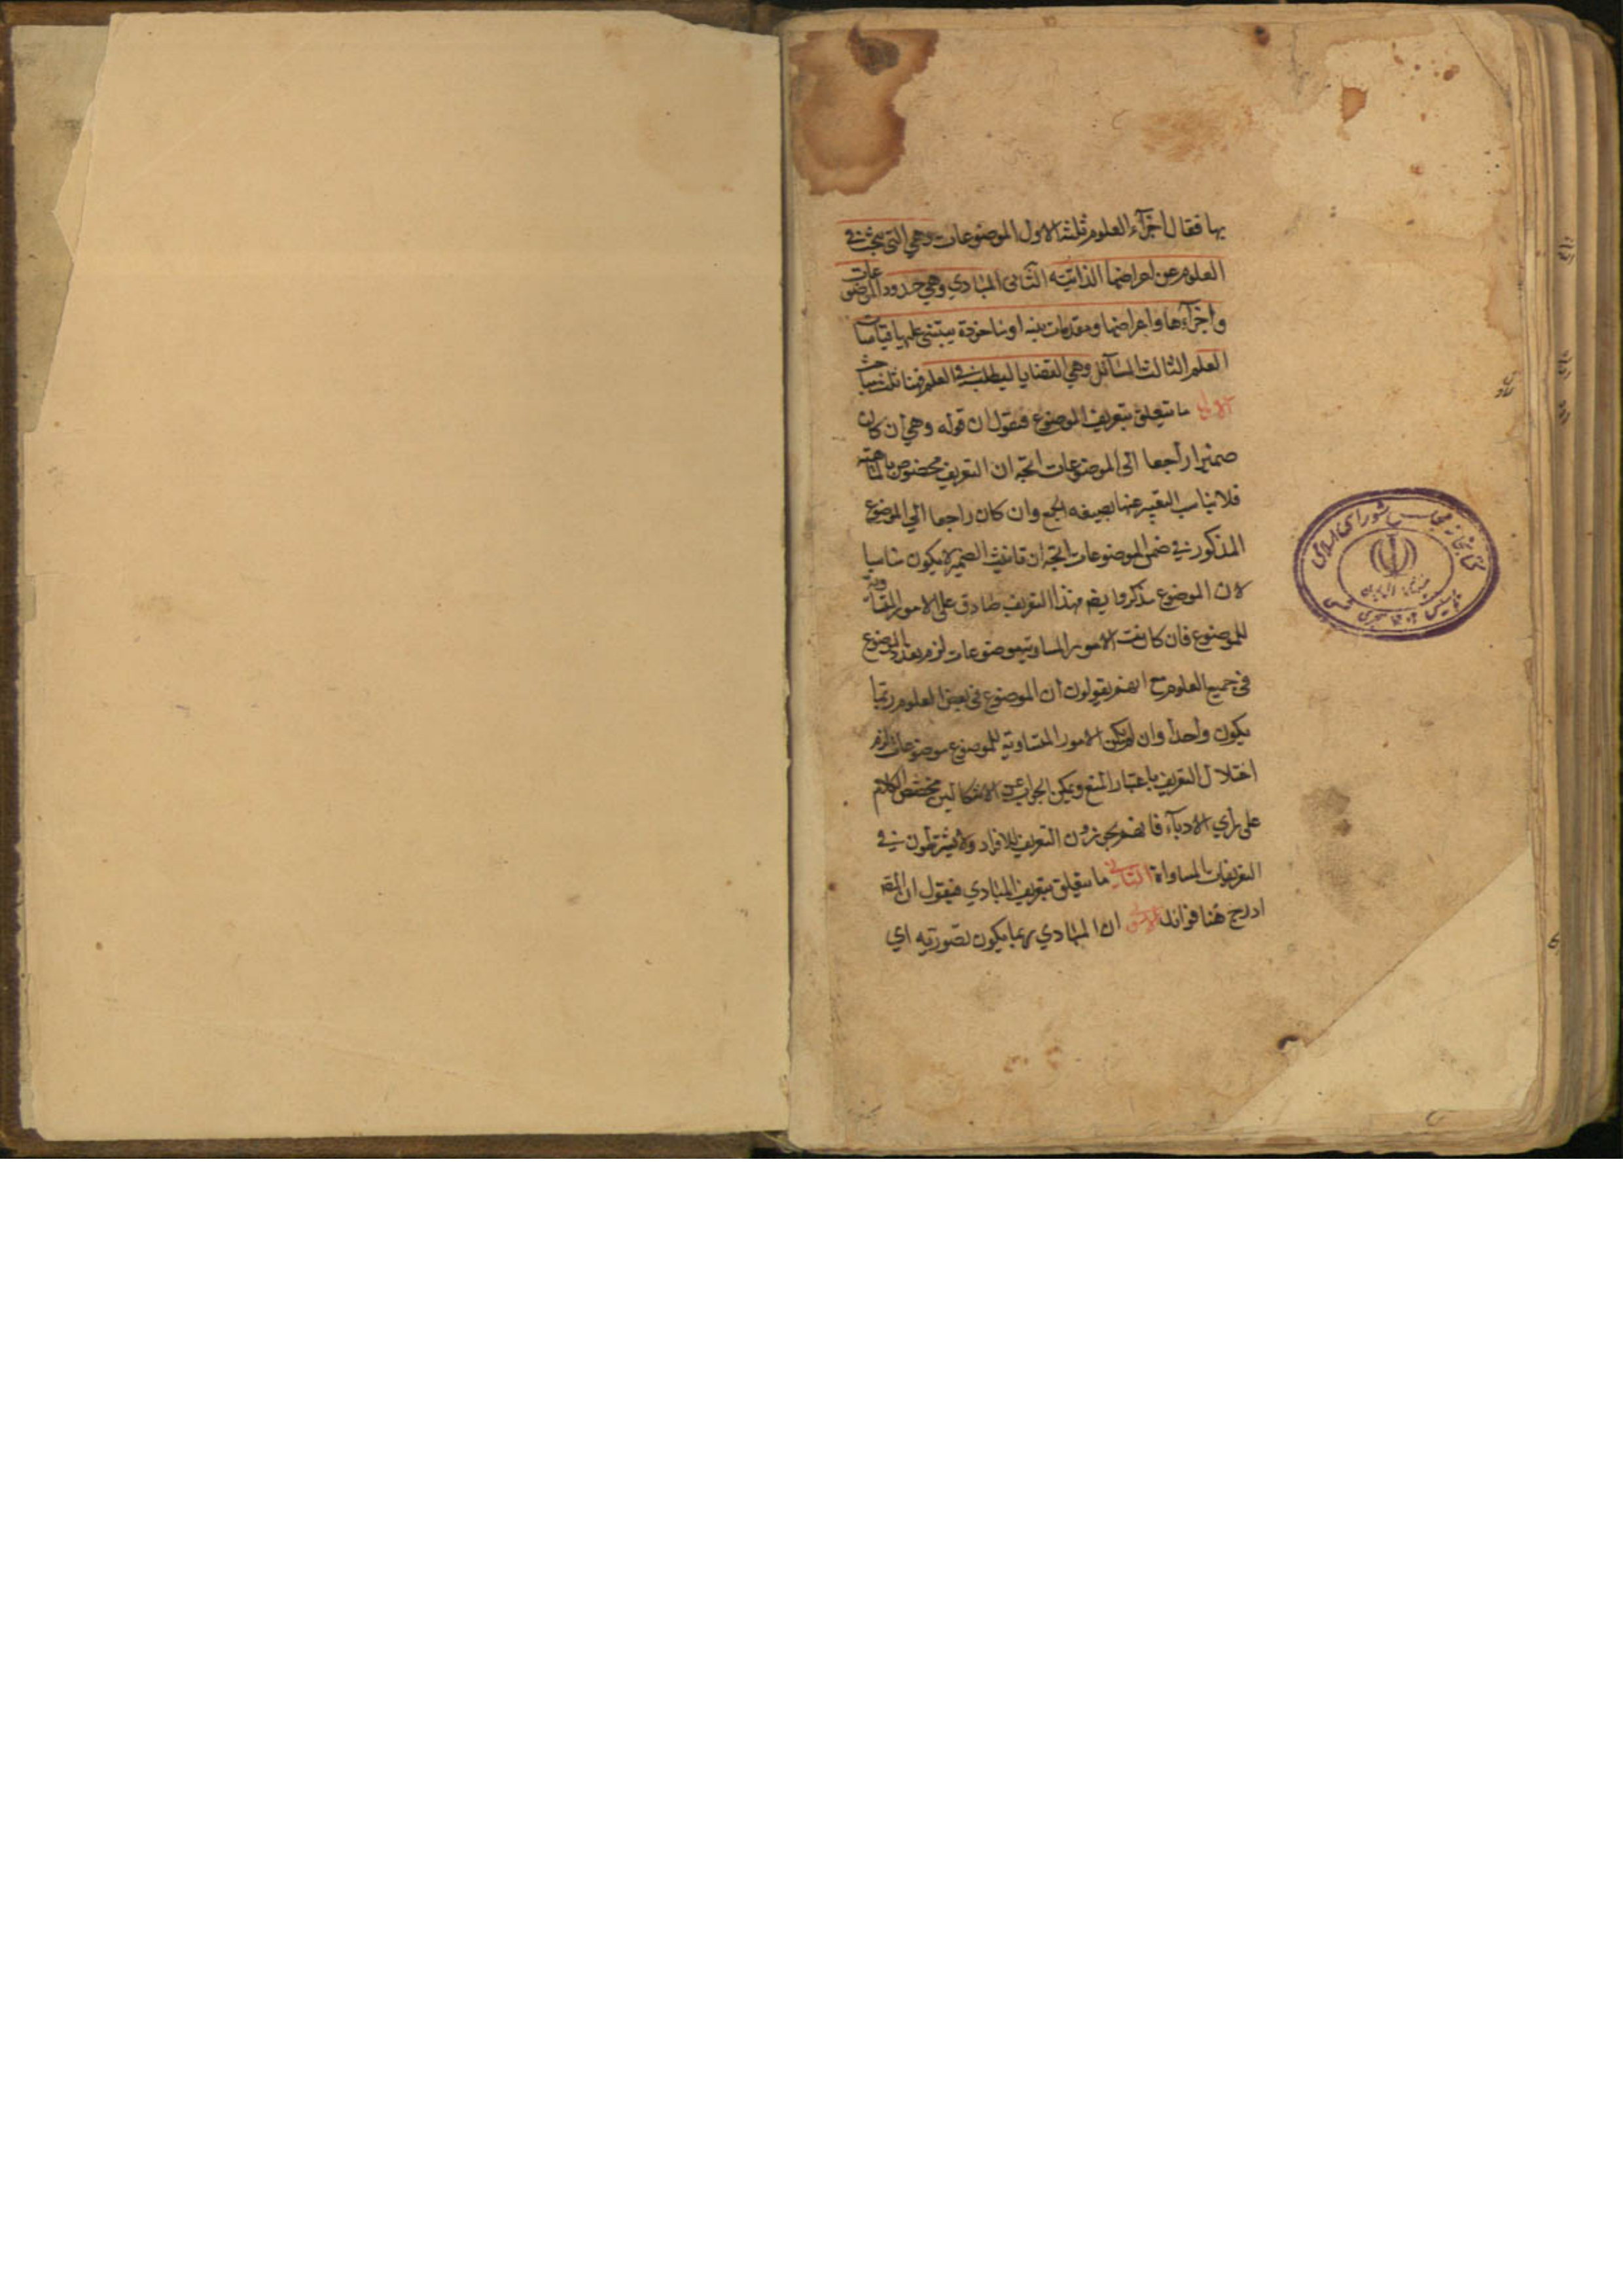 بها فقال اجزآء العلوم ثلثة الاول الموضوعات وهي التي يبحث في
العلوم عن اعراضها الذاتية الثانى المبادي وهي حدود الموضوعات
واجزآءها واعراضها ومقدمات بينه او ماخوذة يبتنى عليها قياسات
العلم الثالث المسآئل وهي القضايا ليطلب في العلم فهنا ثلث مباحث
الاول ما يتعلق بتعريف الموضوع فنقول ان قوله وهي ان كان
ضميرا راجعا الى الموضوعات اتجه ان التعريف مخصوص بالماهية
فلا يناسب التعبير عنها بصيغه الجمع وان كان راجعا الي الموضوع
المذكور في ضمن الموضوعات اتجه ان تانيث الضمير لا يكون مناسبا
لان الموضوع مذكر وايضا هذا التعريف صادق على الامور المساوية
للموضوع فان كانت الامور المساوية موضوعات لزم تعدد الموضوع
في جميع العلوم مع انهم يقولون ان الموضوع في بعض العلوم ربما
يكون واحدا وان لم يكن الامور المتساوية للموضوع موضوعات لزم
اختلال التعريف باعتبار المنع ويمكن الجواب عن الاشكالين بتخصيص الكلام
على راي الادبآء فانهم يجوزون التعريف للافراد ولا يشترطون في
التعريفات المساواة الثاني ما يتعلق بتعريف المبادي فنقول ان المصه
ادرج هنا فوائد الاولى ان المبادي ربما يكون تصوريه اي
كتابخانه مجلس شورای اسلامی